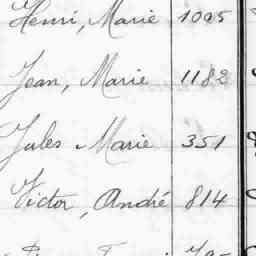 Henri, Marie 1095
Jean, Marie 1182
Jules Marie 351
Victor, André 814